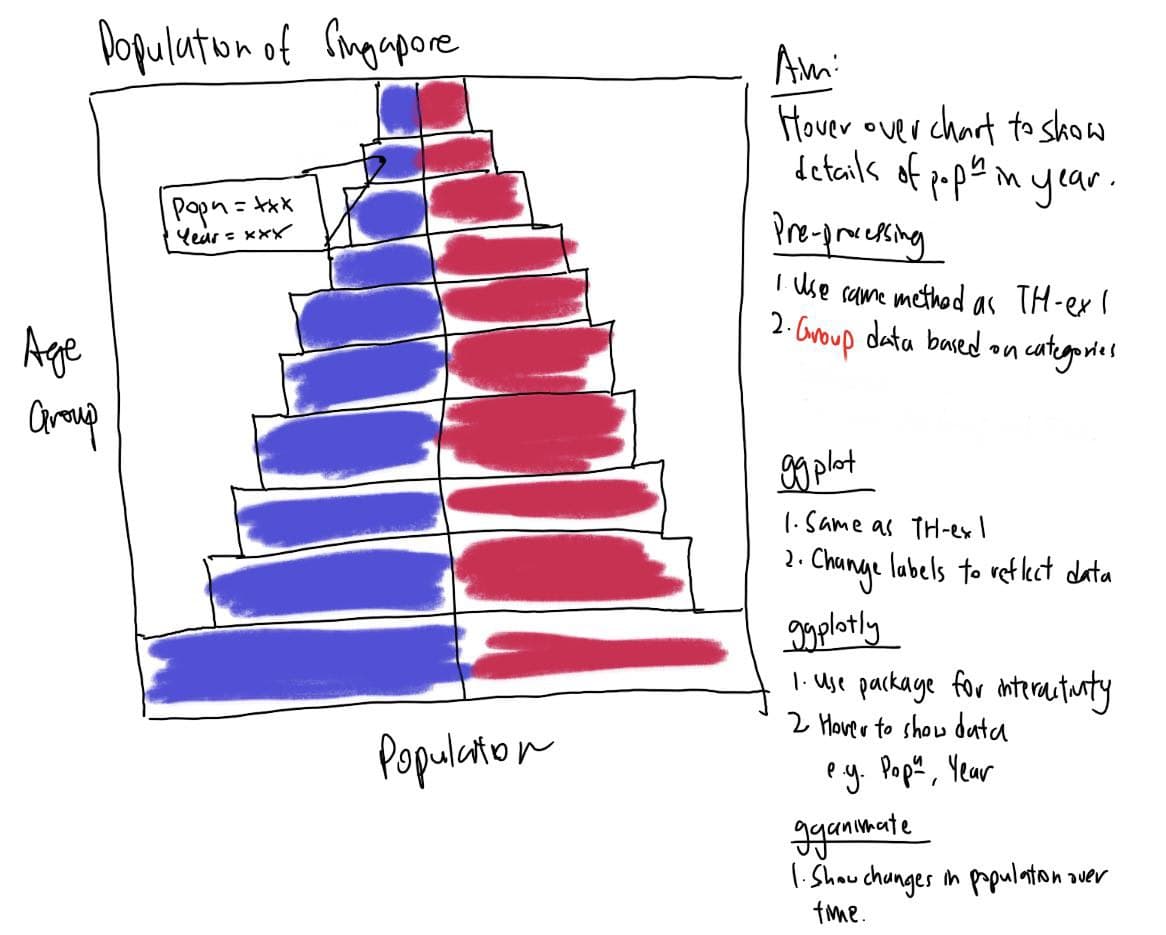 Population of Singapore
Popn = xxx
Year = xxx
Age
Group
Population
Aim:
Hover over chart to show
details of popⁿ in year.
Pre-processing
1. Use same method as TH-ex 1
2. Group data based on categories
ggplot
1. Same as TH-ex 1
2. Change labels to reflect data
ggplotly
1. Use package for interactivity
2 Hover to show data
e.g. Popⁿ, Year
gganimate
1. Show changes in population over
time.